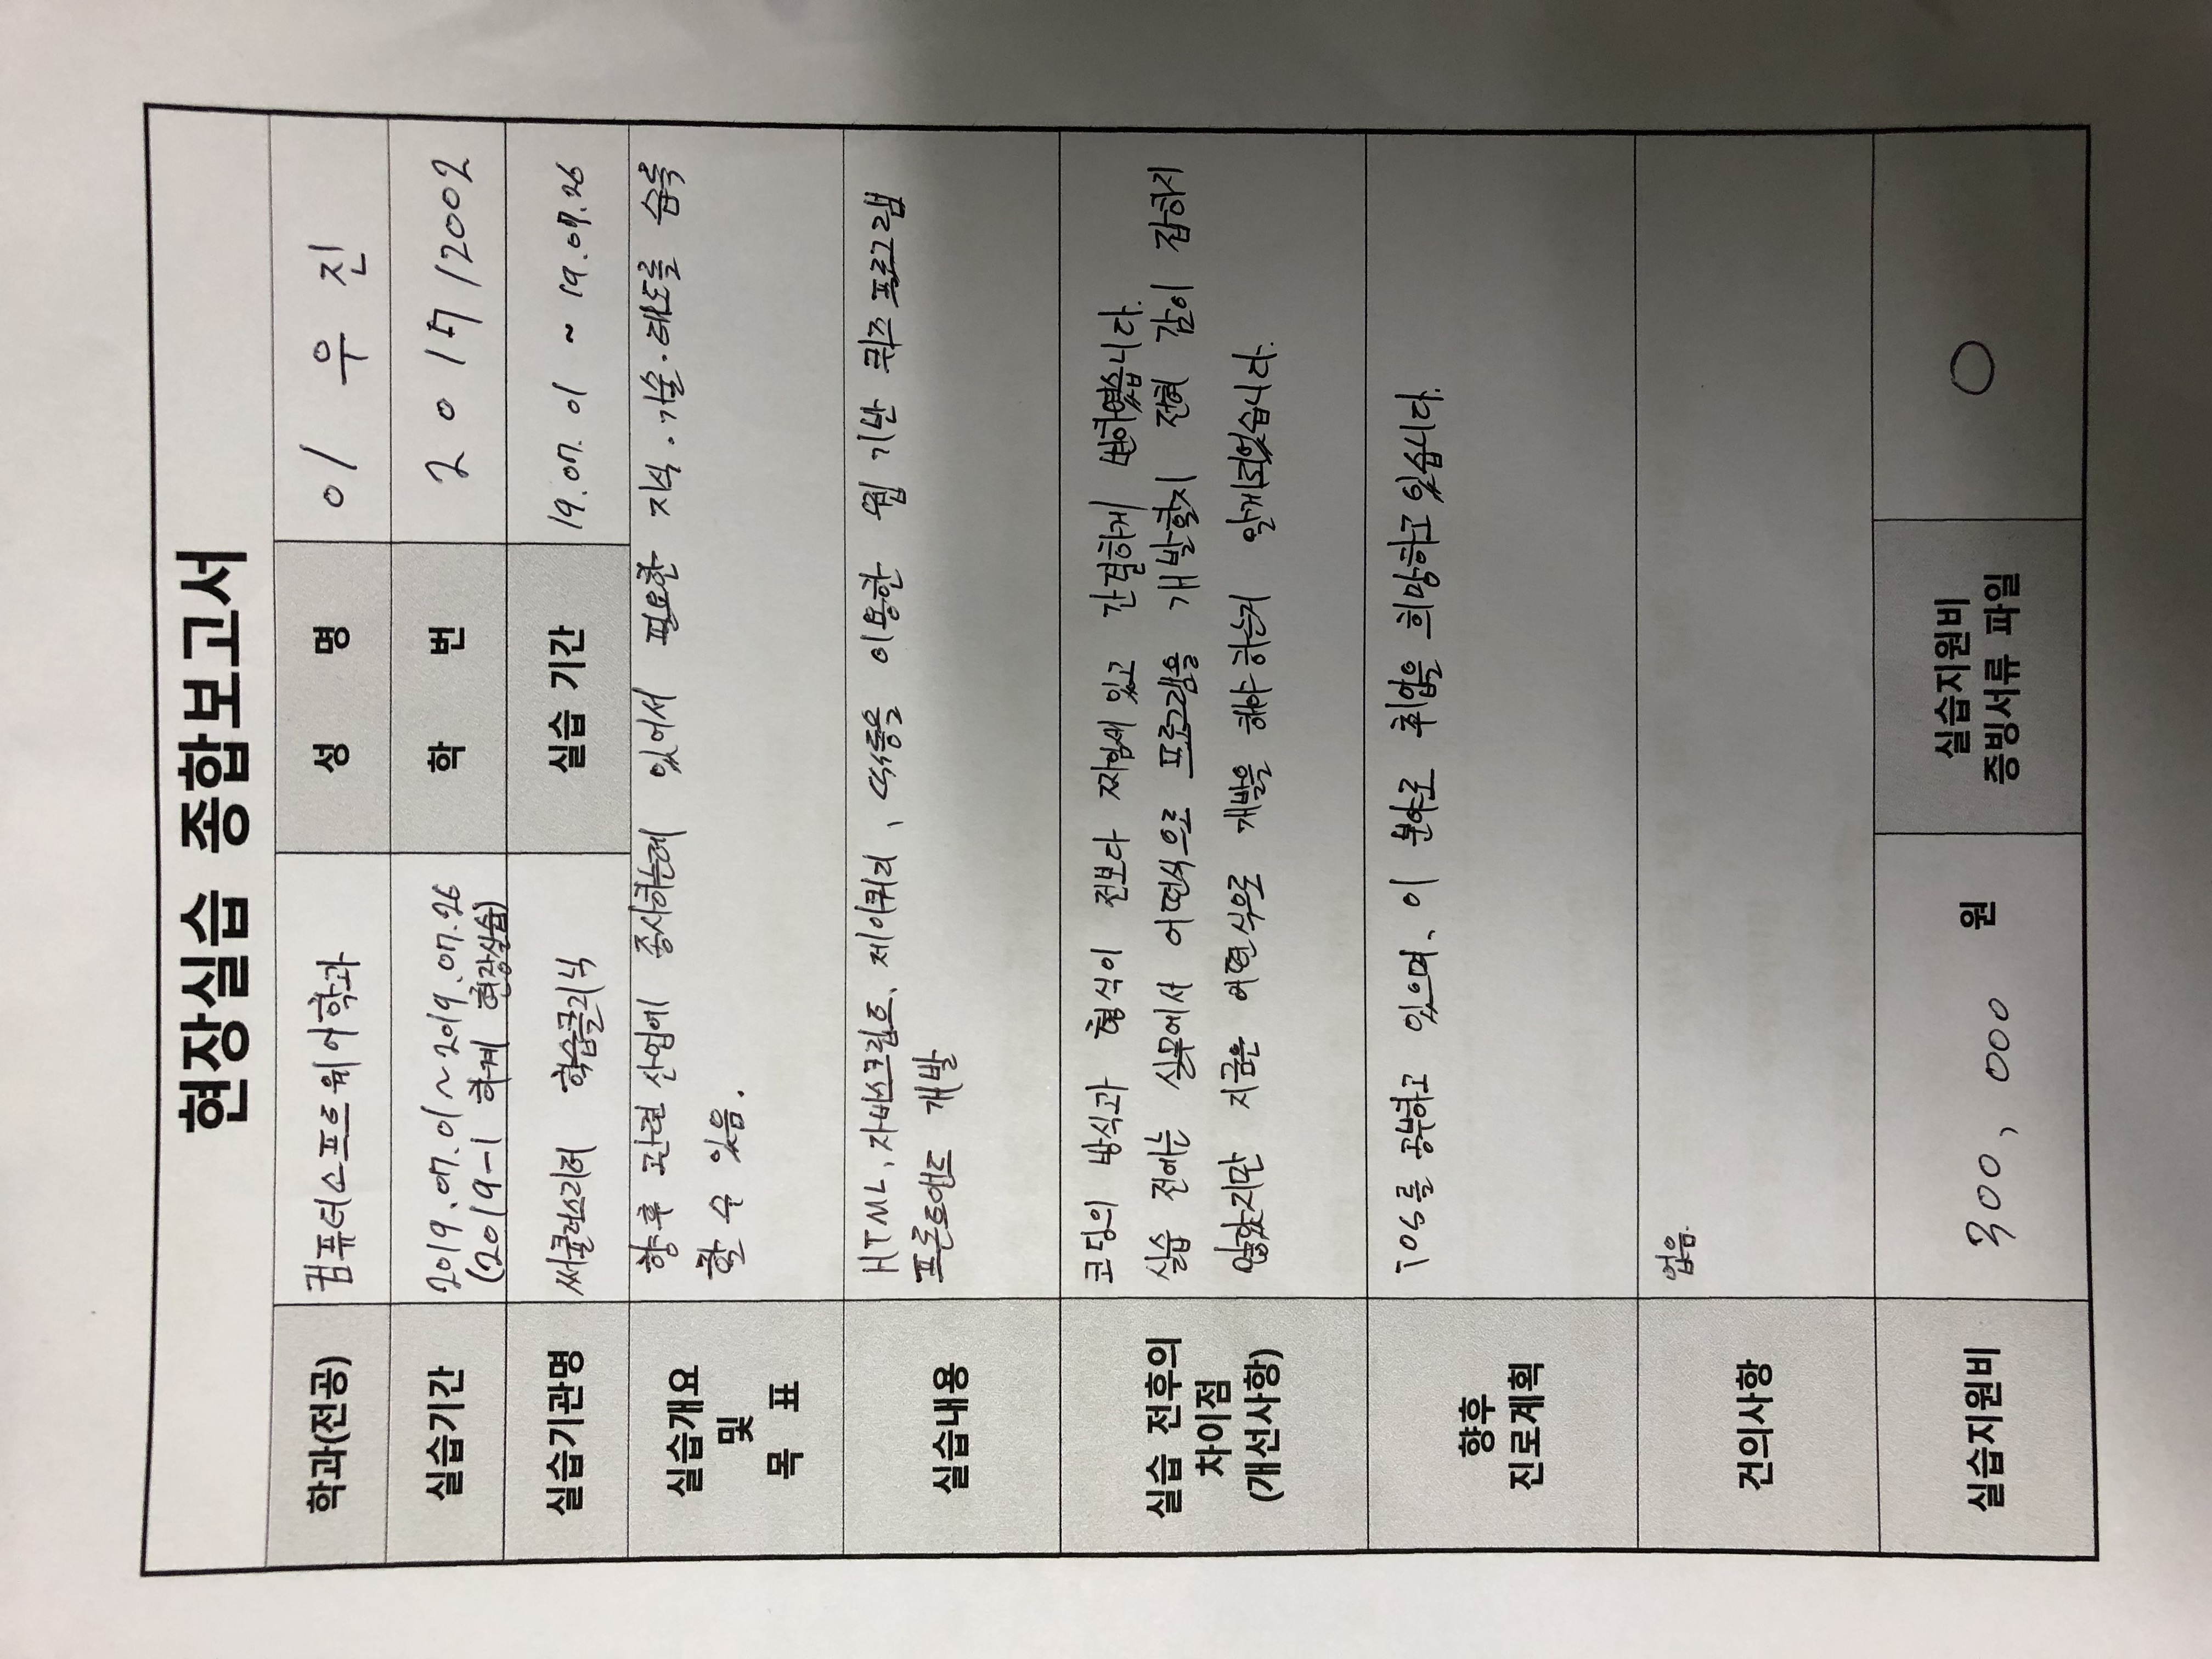 현장실습 종합보고서
학과(전공) 컴퓨터소프트웨어학과 성 명 이 우 진
실습기간 2019.07.01 ~ 2019.07.26
(2019-1 하계 현장실습)
학 번 2017/2002
실습기관명 써큘러스리더 학습클리닉 실습 기간 19.07.01 ~ 19.07.26
실습개요
및
목 표
향후 관련 산업에 종사하는데 있어서 필요한 지식·기술·태도를 습득
할 수 있음.
실습내용
HTML, 자바스크립트, 제이쿼리, css등을 이용한 웹 기반 퀴즈 프로그램
프론트앤드 개발
실습 전후의
차이점
(개선사항)
코딩의 방식과 형식이 전보다 짜임새 있고 간결하게 변하였습니다.
실습 전에는 실무에서 어떤식으로 프로그램을 개발할지 전혀 감이 잡히지
않았지만 지금은 어떤식으로 개발을 해야 하는지 알게되었습니다.
향후
진로계획
iOS를 공부하고 있으며, 이 분야로 취업을 희망하고 있습니다.
건의사항
없음.
실습지원비 300,000 원
실습지원비
증빙서류 파일
○